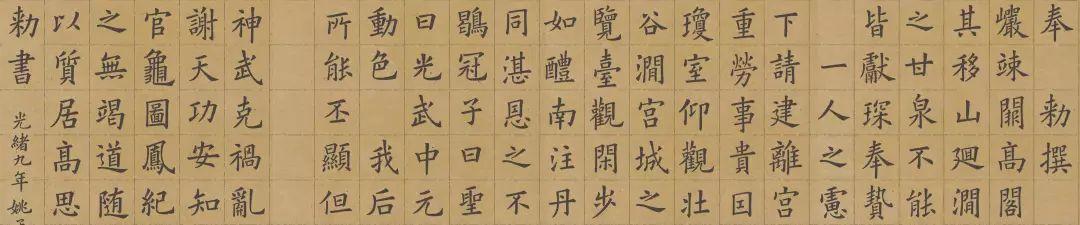 奉 勅撰
巖竦闕高閣
其移山迴澗
之甘泉不能
皆獻琛奉贄
一人之憲
下請建離宮
重勞事貴囙
瓊室仰觀壯
谷澗宮城之
覽臺觀閑步
如醴南注丹
同湛恩之不
鶡冠子曰聖
曰光武中元
動色 我后
所能丕顯但
神武克禍亂
謝天功安知
官龜圖鳳紀
之無竭道随
以質居高思
勅書
光緒九年姚